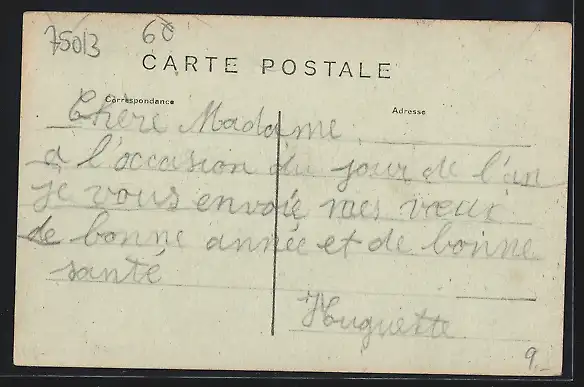 75013 60
CARTE POSTALE
Correspondance Adresse
Chère Madame
a l'occasion du jour de l'an
je vous envoie mes vœux
de bonne année et de bonne
santé
Huguette
9.-